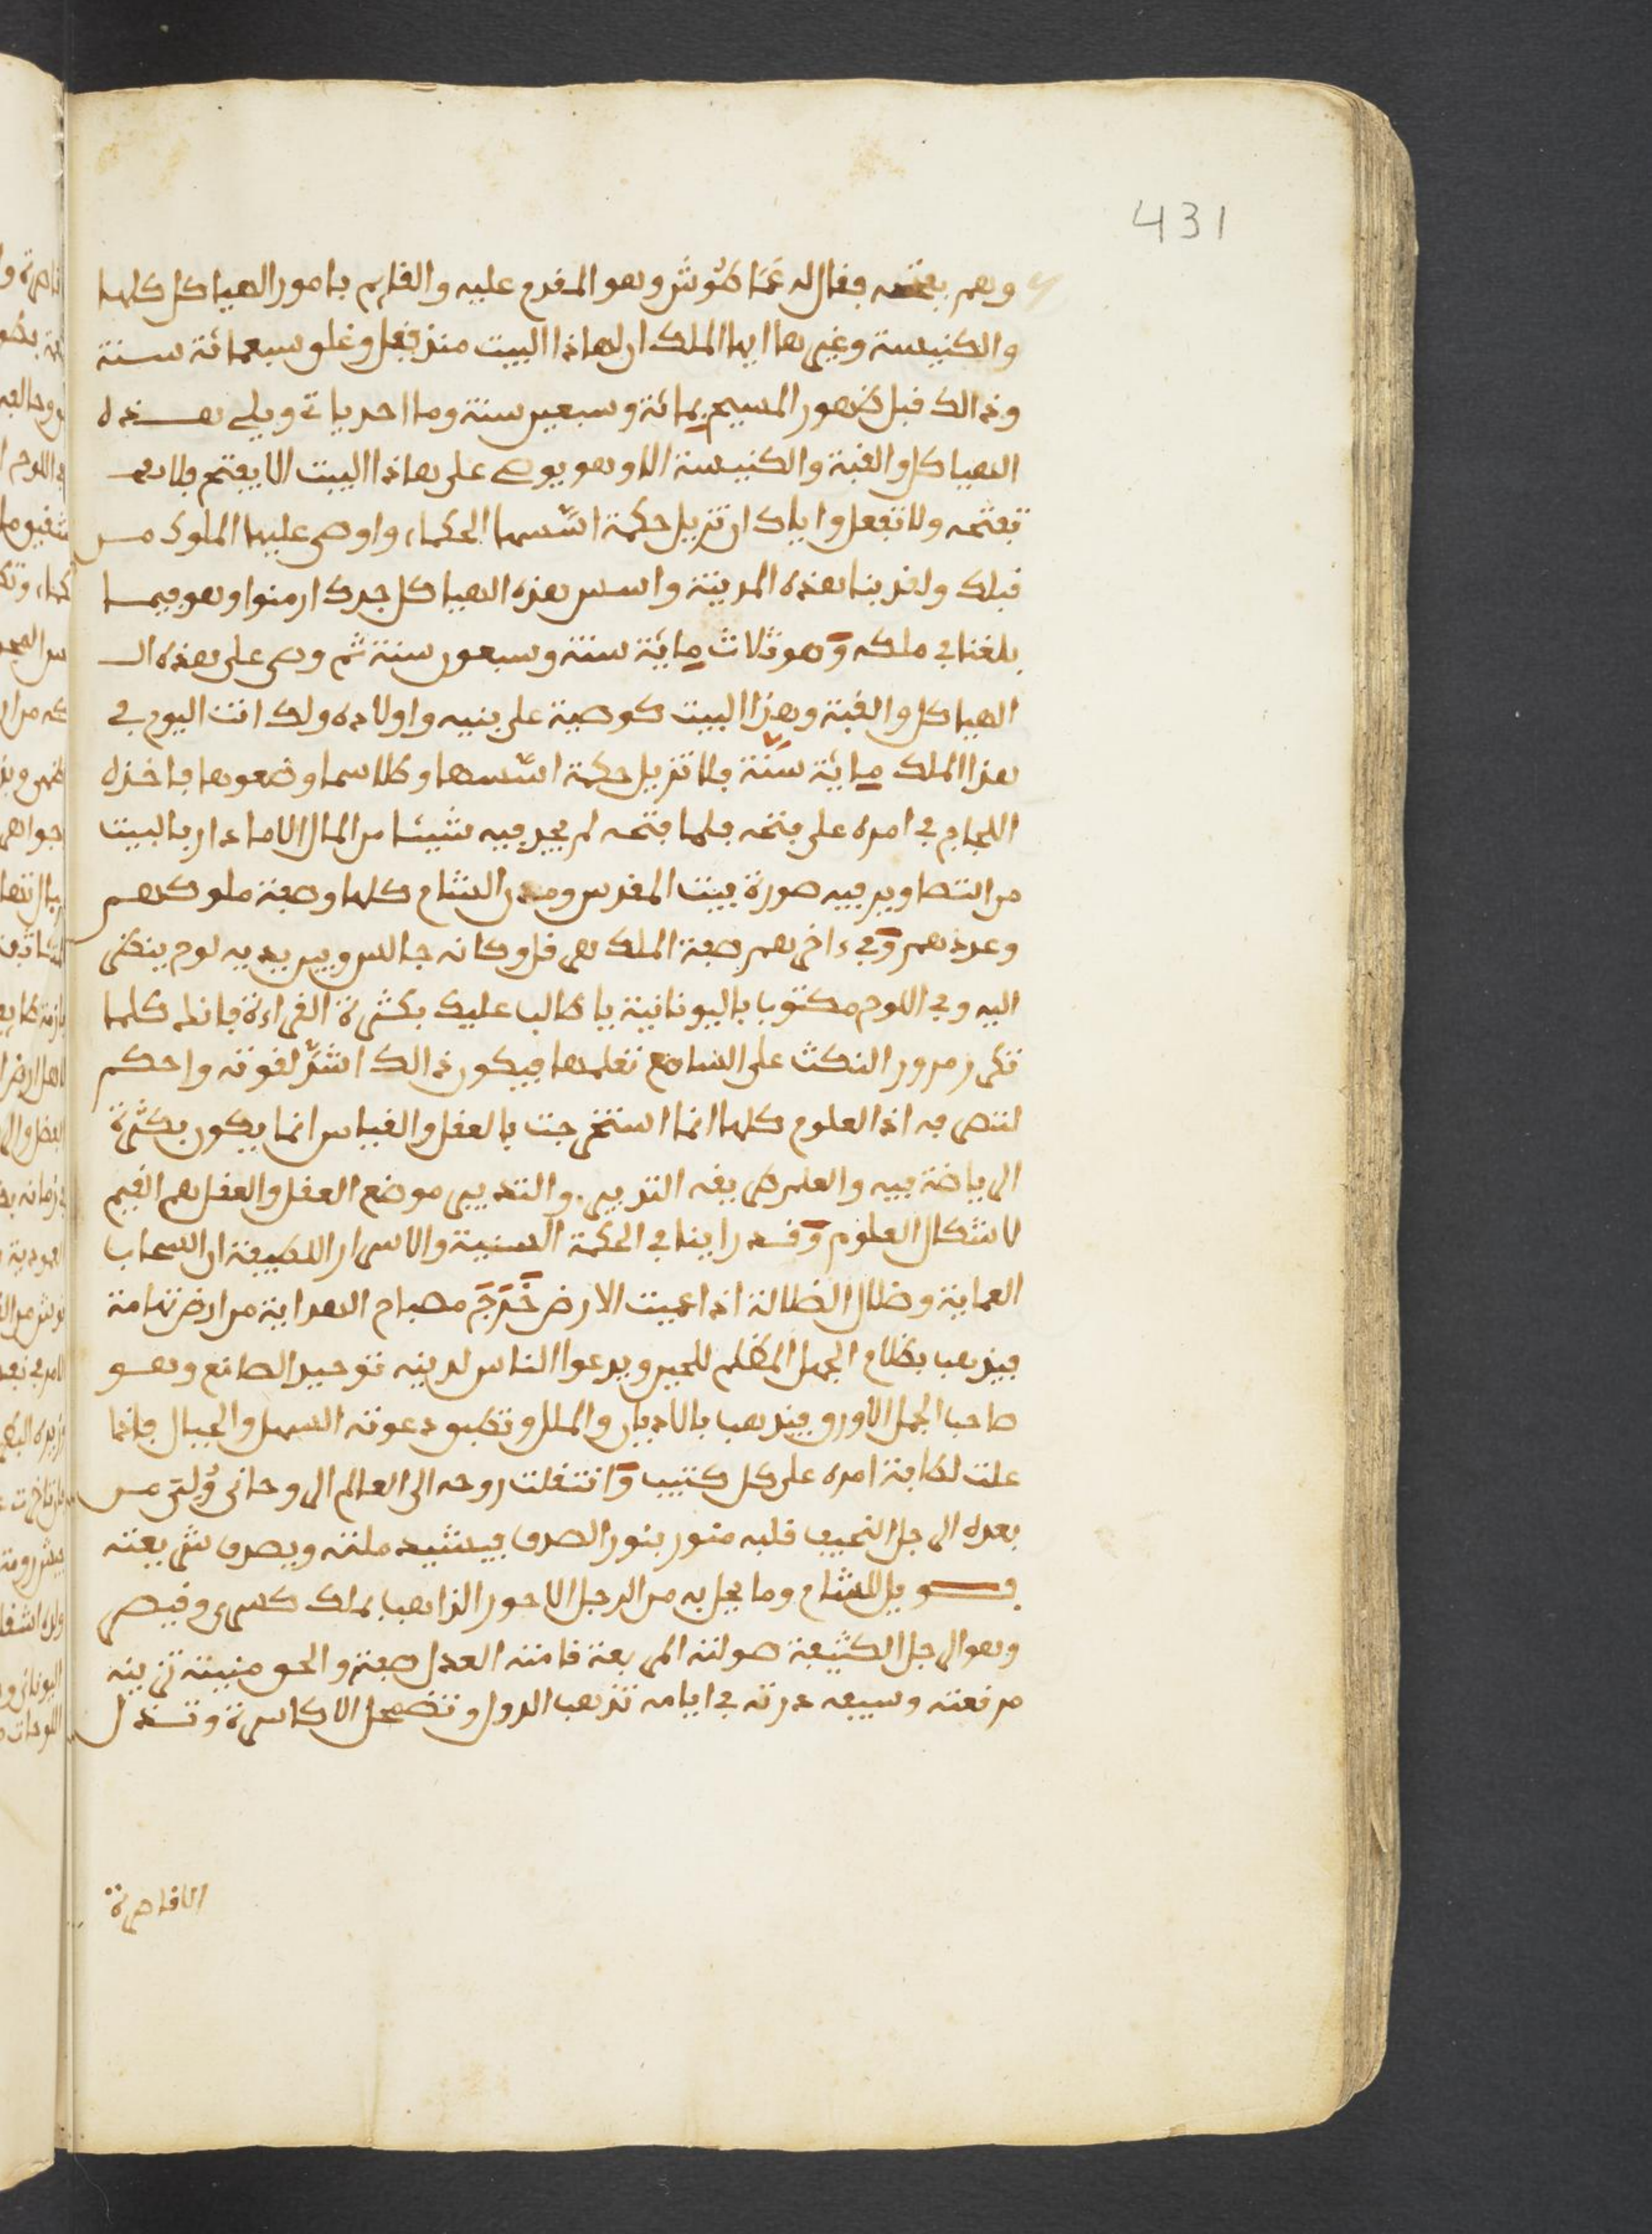 431
وهم بفتحه فقال له غماطوش وهو المقدم عليه والقايم بامور الهياكل كلها
والكنيسة وغيرها ايها الملك ان لهاذا البيت منذ قفل وغلق سبعمائة سنة
وذالك قبل ظهور المسيح بمائة وسبعين سنة وما احد ياتى ويلي هذه
الهياكل والقبة والكنيسة الا وهو يوصى على هاذا البيت الا يفتح فلا
تفتحه ولا تفعل واياك ان تزيل حكمة اسسها الحكماء واوصى عليها الملوك من
قبلك ولقد بنا هذه المدينة واسس هذه الهياكل جدك ارمنوا وهو فيما
بلغنا في ملكه وهو ثلاث ماية سنة وسبعون سنة ثم وصى على هذه الـ
الهياكل والقبة وهذا البيت كوصية على بنيه واولاده ولك انت اليوم في
هذا الملك ماية سنة فلا تزيل حكمة اسسها وطلاسما وضعوها فاخذه
اللجاج في امره على فتحه فلما فتحه لم يجد فيه شيئا من المال الا ما دار بالبيت
من التصاوير فيه صورة بيت المقدس ومدن الشام كلها وصفة ملوكهم
وعددهم وفي ءاخرهم صفة الملك هرقل وكانه جالس وبين يديه لوح ينظر
اليه وفي اللوح مكتوبا باليونانية يا طالب عليك بكثرة القراءة فانه كلما
تكرر مرور النكث على السامع تعلمها فيكون ذالك اشد لقوته واحكم
لتصرفه اذ العلوم كلها انما استخرجت بالعقل والقياس انما يكون بكثرة
الرياضة فيه والعلم طريقه التدبير والتدبير موضع العقل والعقل هم القيم
لاشكال العلوم وقد راينا في الحكمة السنية والاسرار اللطيفة ان السحاب
العماية وضلال الضلالة اذا عميت الارض خرج مصباح الهداية من ارض تهامة
فيذهب بظلام الجهل المظلم للحير ويدعوا الناس لدينه توحيد الصانع وهو
صاحب الجمل الاورق فيذهب بالاديان والملل وتطبق دعوته السهل والجبال فاذا
علت لطافة امره على كل كثيب وانتقلت روحه الى العالم الروحاني ولى من
بعده الرجل النحيف قلبه منور بنور الصدق فيشيد ملته ويصدق شريعته
فويل للشام وما يحل به من الرجل الاحور الذاهب بملك كسرى وقيصر
وهو الرجل الكثيفة صولته المربعة قامته العدل صفته والحق منيته تزينه
مرقعته وسيفه درته في ايامه تذهب الدول وتضمحل الاكاسرة وتنذل
القاصرة